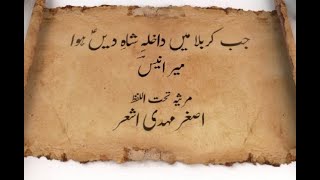 جب کربلا میں داخلہ شاہِ دیںؑ ہوا
میر انیسؔ
مرثیہ تحت اللفظ
اصغر مہدی اشعر